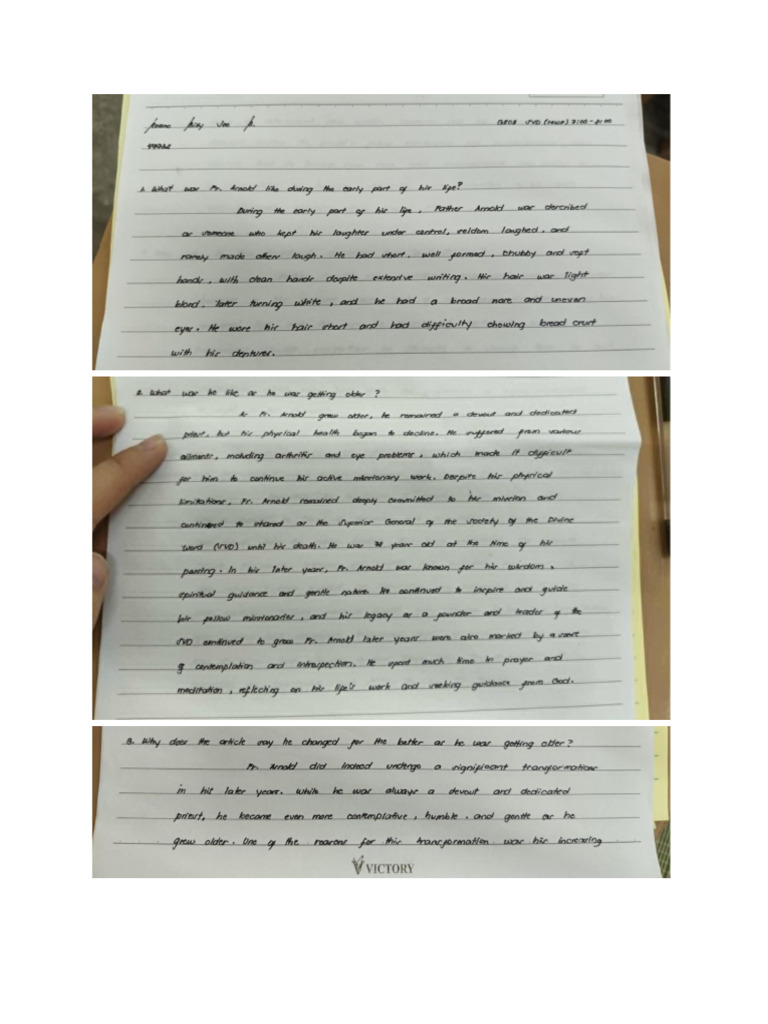 Jee
SVD 7:00 - 8:00
1. What was Fr. Arnold like during the early part of his life?
During the early part of his life, Father Arnold was dercribed
as someone who kept his laughter under control, seldom laughed, and
rarely made others laugh. He had short, well formed, chubby and soft
hands, with clean hands despite extensive writing. His hair was light
blond, later turning white, and he had a broad nose and uneven
eyes. He wore his hair short and had difficulty chewing bread crust
with his dentures.
2. What was he like as he was getting older?
As Fr. Arnold grew older, he remained a devout and dedicated
priest, but his physical health began to decline. He suffered from various
ailments, including arthritis and eye problems, which made it difficult
for him to continue his active missionary work. Despite his physical
limitations, Fr. Arnold remained deeply committed to his mission and
continued to as the Superior General of the Society of the Divine
Word (SVD) until his death. He was years old at the time of his
passing. In his later years, Fr. Arnold was known for his wisdom,
spiritual guidance and gentle nature. He continued to inspire and guide
his fellow missionaries, and his legacy as a founder and leader of the
SVD continued to grow. Fr. Arnold later years were also marked by a sense
of contemplation and introspection. He spent much time in prayer and
meditation, reflecting on his life's work and seeking guidance from God.
3. Why does the article say he changed for the better as he was getting older?
Fr. Arnold did indeed undergo a significant transformations
in his later years. While he was always a devout and dedicated
priest, he became even more contemplative, humble, and gentle as he
grew older. One of the reasons for this transformation was his increasing
VICTORY